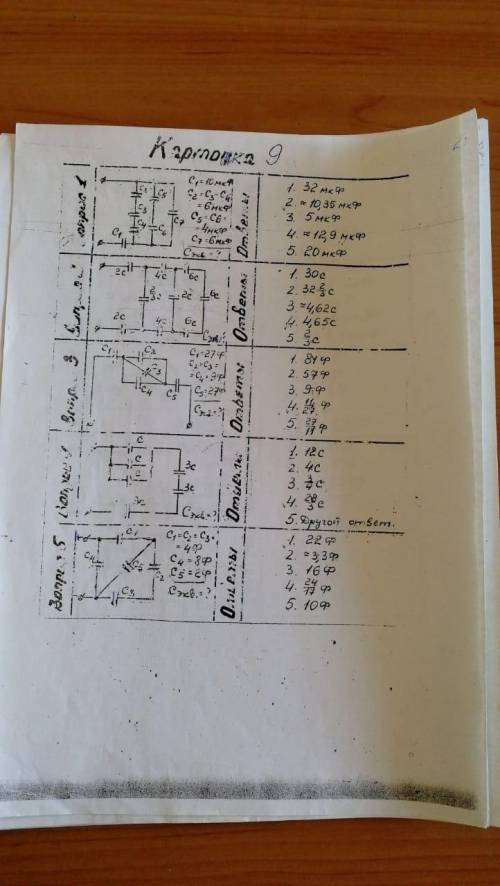 Карточка 9
Вопрос 1
C₁
C₂
C₃
C₄
C₅
C₆
C₇
C₁=10мкф
C₂=C₃=C₄
=6мкф
C₅=C₆=
=4мкф
C₇=6мкф
Cэкв.=?
Ответы
1. 32 мкф
2. ≈10,35 мкф
3. 5 мкф
4. ≈12,9 мкф
5. 20 мкф
2C
4C
6C
2C
6C
2C
4C
6C
Cэкв=?
Ответы
1. 30C
2. 32 2/3 C
3. ≈4,62C
4. 4,65C
5. 2/3 C
C₁
C₂
C₃
C₄
C₅
C₁=27Ф
C₂=C₃=
=C₄=9Ф
C₅=27Ф
Cэкв=?
Ответы
1. 81Ф
2. 57Ф
3. 9Ф
4. 14/27 Ф
5. 27/11 Ф
C
C
C
3C
3C
3C
Cэкв.=?
Ответы
1. 12C
2. 4C
3. 3/4 C
4. 28/3 C
5. Другой ответ.
Вопрос 5
C₁
C₄
C₅
C₂
C₃
C₁=C₂=C₃=
=4Ф
C₄=8Ф
Cэкв.=?
Ответы
1. 22Ф
2. ≈3,3Ф
3. 16Ф
4. 24/17 Ф
5. 10Ф